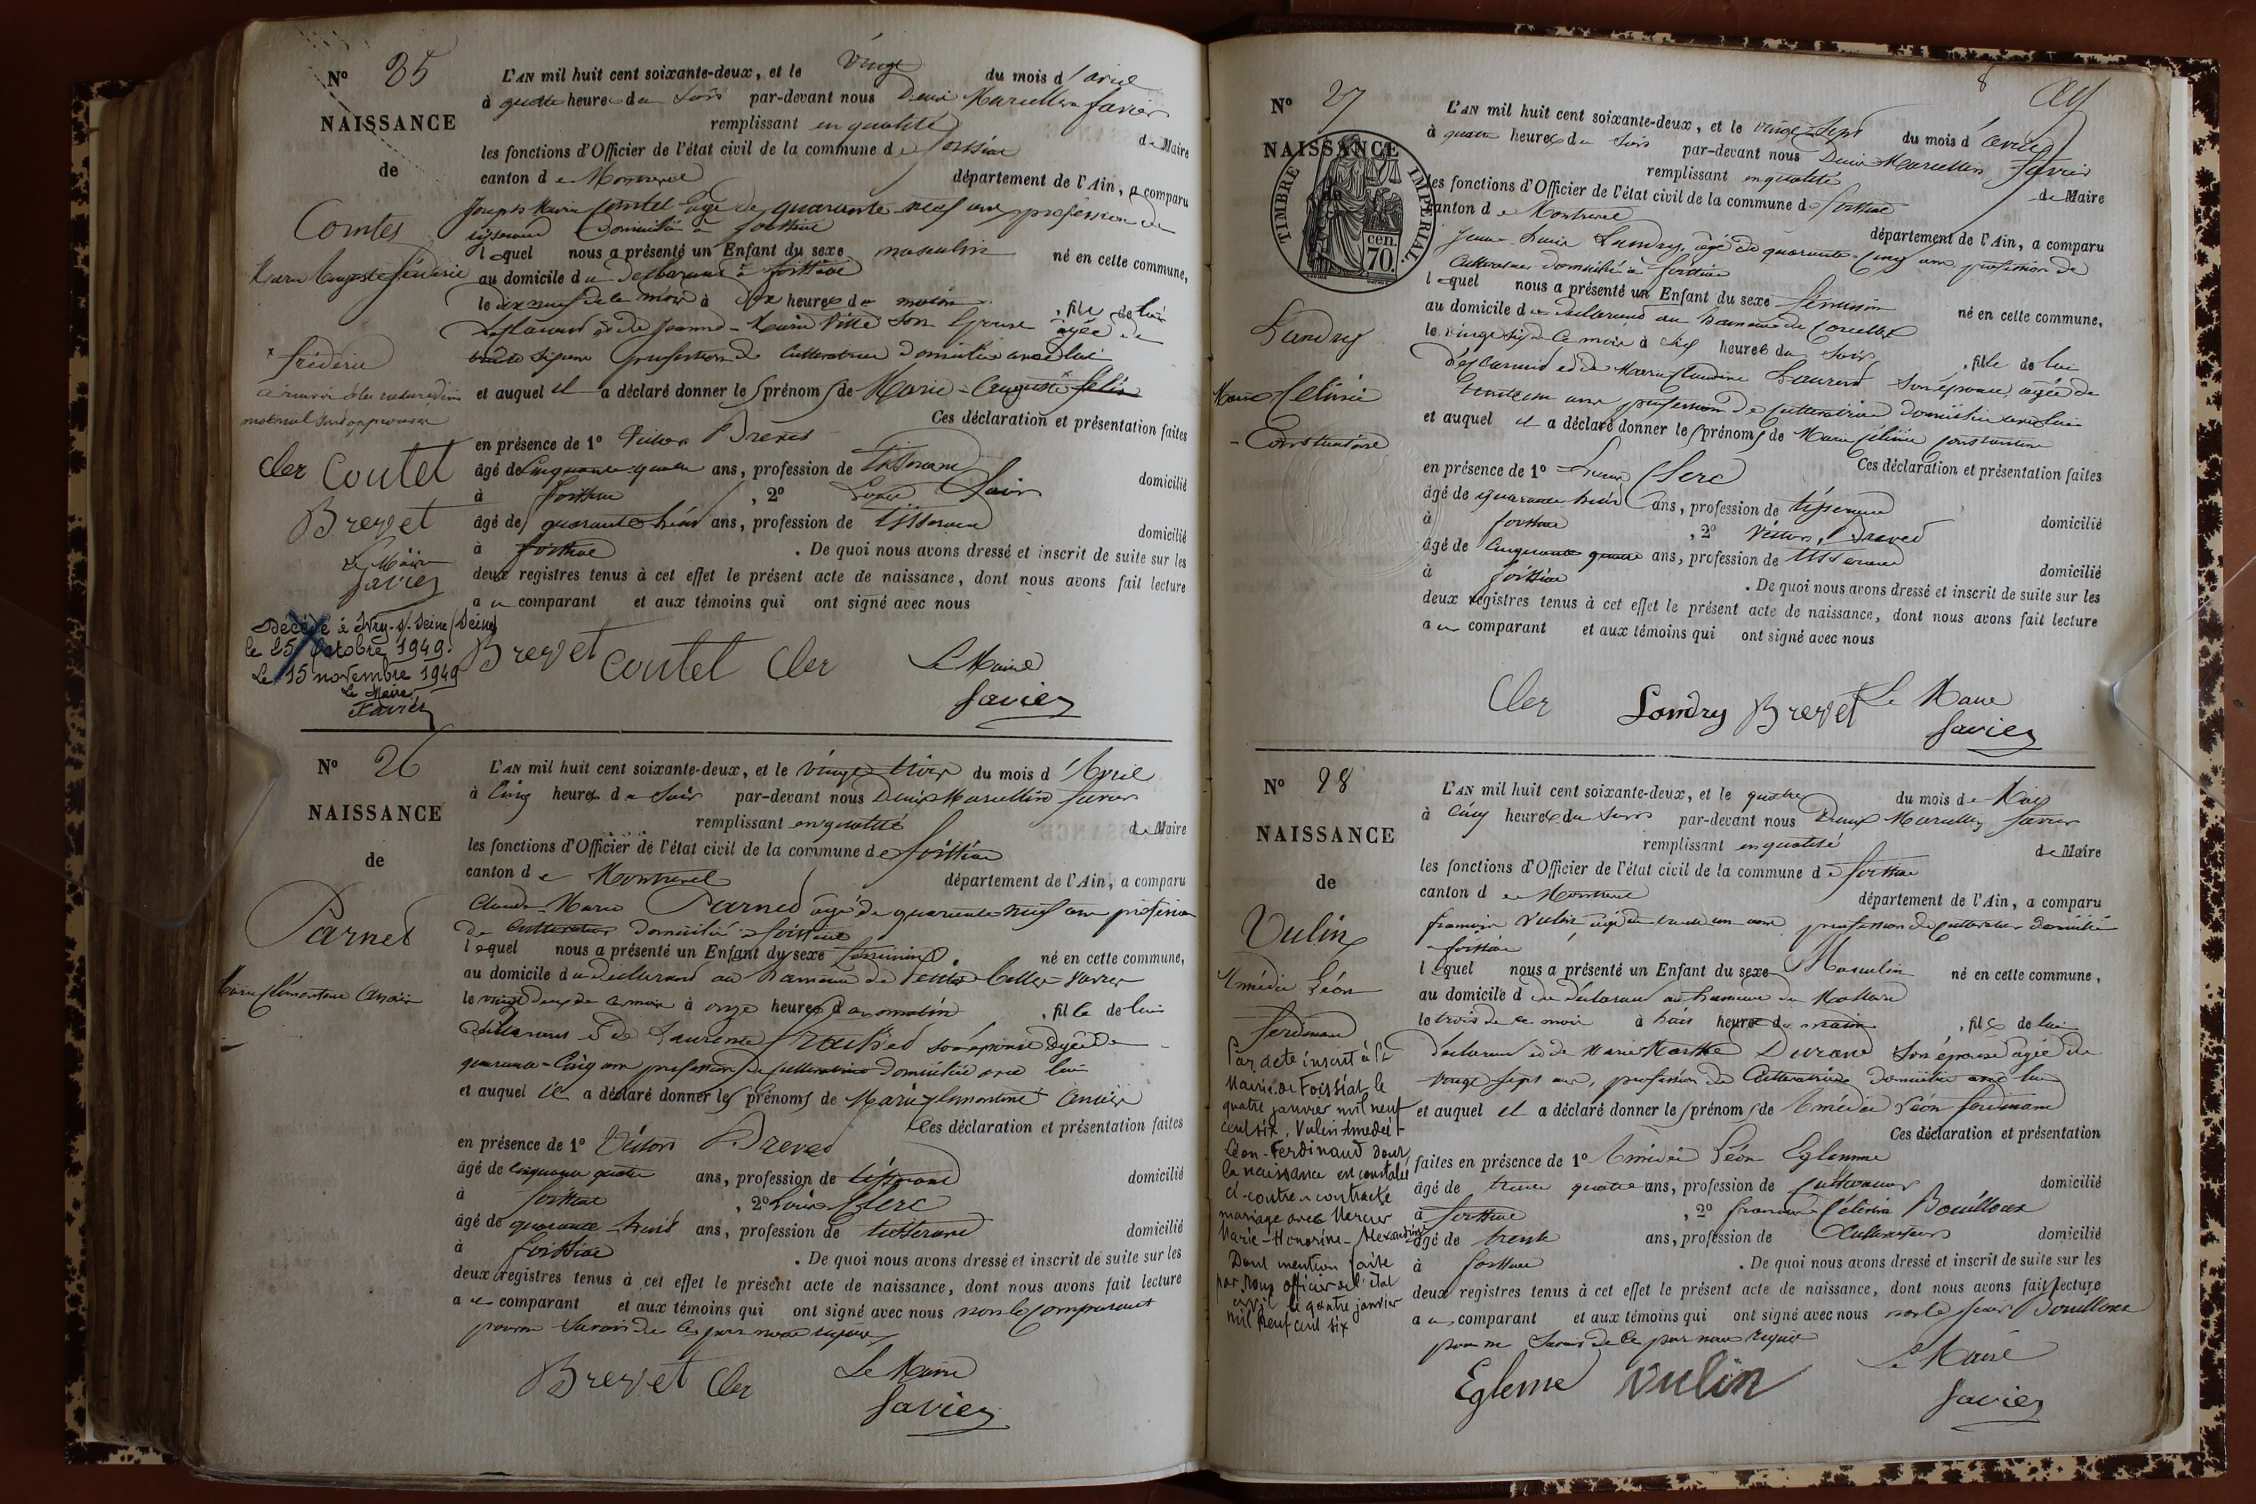 N° 25
NAISSANCE
de
Comtet
Marie Auguste Frédéric
L'AN mil huit cent soixante-deux, et le vingt du mois d'avril
à quatre heures du soir par-devant nous Denis Marcellin Favier
remplissant en qualité de Maire
les fonctions d'Officier de l'état civil de la commune de foissiat
canton de Montrevel département de l'Ain, a comparu
Joseph Marie Comtet âgé de quarante neuf ans profession de
tisserand domicilié à foissiat
lequel nous a présenté un Enfant du sexe masculin né en cette commune,
au domicile du déclarant à foissiat
le dix neuf de ce mois à dix heures du matin, fils de lui
déclarant et de Jeanne-Marie son épouse âgée de
profession de cultivatrice domiciliée avec lui
et auquel il a déclaré donner les prénoms de Marie-Auguste × félix
Ces déclaration et présentation faites
en présence de 1° Victor Brevet
âgé de cinquante-quatre ans, profession de tisserand domicilié
à foissiat, 2° Louis Clair
âgé de quarante huit ans, profession de tisserand domicilié
à foissiat. De quoi nous avons dressé et inscrit de suite sur les
deux registres tenus à cet effet le présent acte de naissance, dont nous avons fait lecture
au comparant et aux témoins qui ont signé avec nous
Brevet Coutet Cler Le Maire
Favier
× frédéric
Cler Coutet
Brevet
Le Maire
Favier
Décédé à Ivry-s/-Seine (Seine)
le 25 Octobre 1949.
Le 15 novembre 1949
Le Maire,
Favier
N° 26
NAISSANCE
de
Parnet
Marie Clémentine
L'AN mil huit cent soixante-deux, et le vingt trois du mois d'Avril
à cinq heures du soir par-devant nous Denis Marcellin Favier
remplissant en qualité de Maire
les fonctions d'Officier de l'état civil de la commune de foissiat
canton de Montrevel département de l'Ain, a comparu
Claude-Marie Parnet âgé de quarante neuf ans profession
de cultivateur domicilié à foissiat
lequel nous a présenté un Enfant du sexe féminin né en cette commune,
au domicile du déclarant au hameau de
le vingt deux de ce mois à onze heures du matin, fille de lui
déclarant et de Laurence son épouse âgée de
quarante-cinq ans profession de cultivatrice domiciliée avec lui
et auquel il a déclaré donner les prénoms de Marie Clémentine
Ces déclaration et présentation faites
en présence de 1° Victor Brevet
âgé de cinquante quatre ans, profession de tisserand domicilié
à foissiat, 2° Louis Clerc
âgé de quarante-huit ans, profession de tisserand domicilié
à foissiat. De quoi nous avons dressé et inscrit de suite sur les
deux registres tenus à cet effet le présent acte de naissance, dont nous avons fait lecture
au comparant et aux témoins qui ont signé avec nous non le comparant
pour ne savoir de ce par nous requis
Brevet Cler Le Maire
Favier
8
N° 27
NAISSANCE
de
TIMBRE IMPÉRIAL
70 cen.
Landry
Marie Célinie
-Constantine
L'AN mil huit cent soixante-deux, et le vingt-sept du mois d'avril
à quatre heures du soir par-devant nous Denis Marcellin Favier
remplissant en qualité de Maire
les fonctions d'Officier de l'état civil de la commune de foissiat
canton de Montrevel département de l'Ain, a comparu
Jean-Louis Landry, âgé de quarante-cinq ans profession de
cultivateur domicilié à foissiat
lequel nous a présenté un Enfant du sexe féminin né en cette commune,
au domicile du déclarant au hameau de
le vingt six de ce mois à six heures du soir, fille de lui
déclarant et de Marie Claudine Laurent son épouse, âgée de
ans profession de cultivatrice domiciliée avec lui
et auquel il a déclaré donner les prénoms de Marie Célinie Constantine
Ces déclaration et présentation faites
en présence de 1° Louis Clerc
âgé de quarante huit ans, profession de tisserand domicilié
à foissiat, 2° Victor Brevet
âgé de cinquante quatre ans, profession de tisserand domicilié
à foissiat. De quoi nous avons dressé et inscrit de suite sur les
deux registres tenus à cet effet le présent acte de naissance, dont nous avons fait lecture
au comparant et aux témoins qui ont signé avec nous
Cler Londry Brevet Le Maire
Favier
N° 28
NAISSANCE
de
Vulin
Amédée Léon
Ferdinand
Par acte inscrit à la
Mairie de Foissiat le
quatre janvier mil neuf
cent six, Vulin Amédée-
Léon-Ferdinand dont
la naissance est constatée
ci-contre a contracté
mariage avec Mercier
Marie-Honorine-Alexandrine
Dont mention faite
par nous officier de l'état
civil le quatre janvier
mil neuf cent six
L'AN mil huit cent soixante-deux, et le quatre du mois de Mai
à cinq heures du soir par-devant nous Denis Marcellin Favier
remplissant en qualité de Maire
les fonctions d'Officier de l'état civil de la commune de foissiat
canton de Montrevel département de l'Ain, a comparu
françois Vulin âgé de trente un ans profession de cultivateur domicilié
à foissiat
lequel nous a présenté un Enfant du sexe Masculin né en cette commune,
au domicile du déclarant au hameau de
le trois de ce mois à huit heures du matin, fils de lui
déclarant et de Marie Marthe Durand son épouse âgée de
vingt-sept ans, profession de cultivatrice domiciliée avec lui
et auquel il a déclaré donner les prénoms de Amédée Léon ferdinand
Ces déclaration et présentation
faites en présence de 1° Amédée Léon Egleme
âgé de trente quatre ans, profession de cultivateur domicilié
à foissiat, 2° Bouilloux
âgé de trente ans, profession de cultivateur domicilié
à foissiat. De quoi nous avons dressé et inscrit de suite sur les
deux registres tenus à cet effet le présent acte de naissance, dont nous avons fait lecture
au comparant et aux témoins qui ont signé avec nous non le sieur Bouilloux
pour ne savoir de ce par nous requis
Egleme vulin Le Maire
Favier